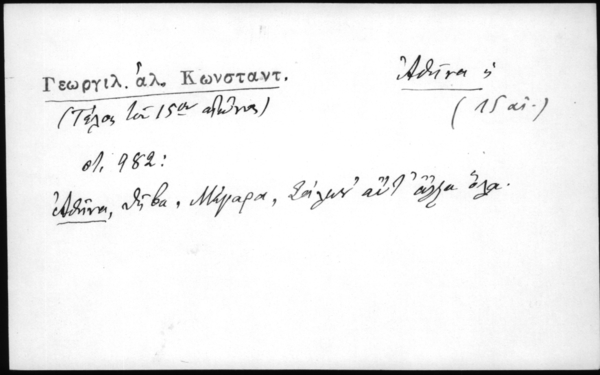 Γεωργιλ. ἅλ. Κωνσταντ.
Ἀθῆνα ἡ
(Τέλος τοῦ 15ου αἰῶνος)
(15 αἰ.)
στ. 982:
Ἀθῆνα, Θῆβα, Μέγαρα, ἄλλα ὅλα.